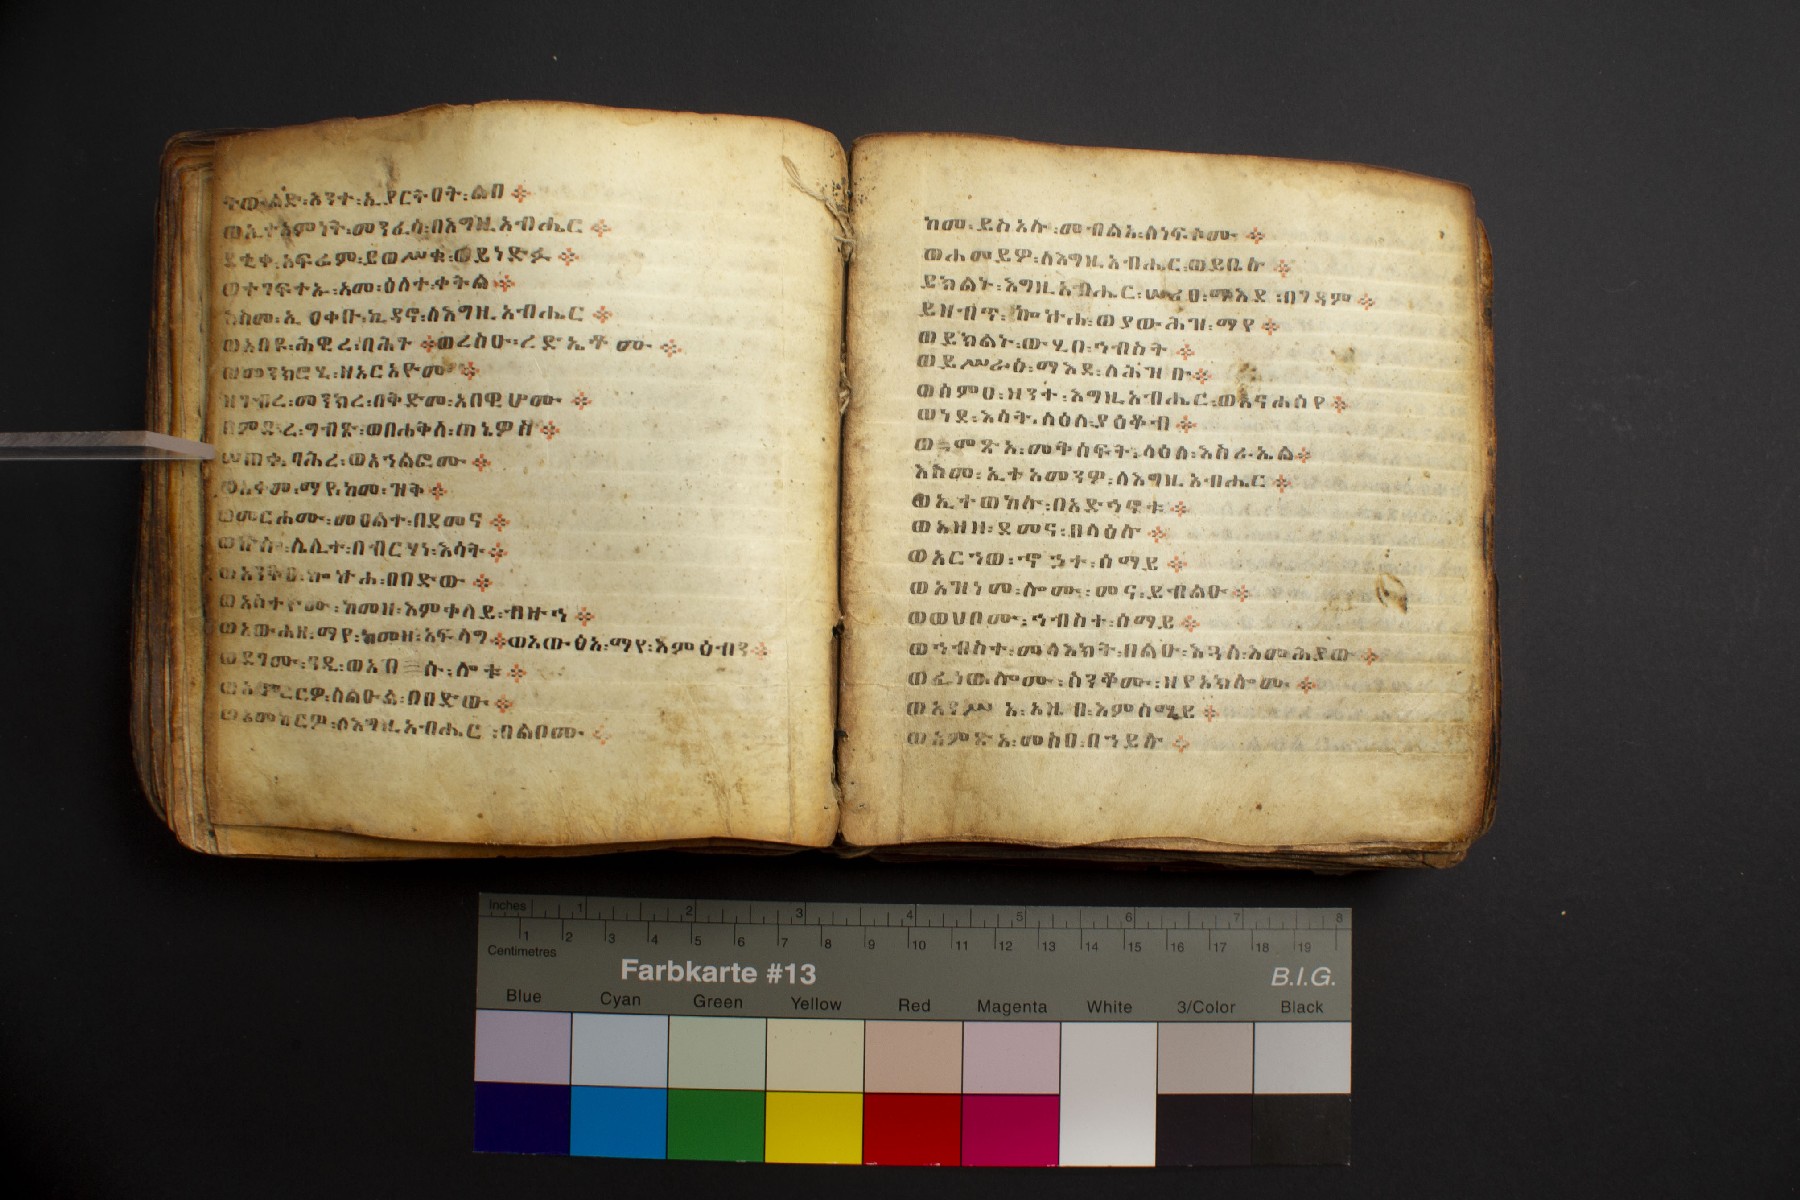 ትውልድ፡እንተ፡ኢያርትዐት፡ልበ ፨
ወኢተአምነት፡መንፈሳ፡በእግዚአብሔር ፨
ደቂቀ፡አፍሬም፡ይወሥቁ፡ወይነድፉ ፨
ወተገፍተኡ፡አመ፡ዕለተ፡ቀትል ፨
እስመ፡ኢዐቀቡ፡ኪዳኖ፡ለእግዚአብሔር ፨
ወአበዩ፡ሐዊረ፡በሕጉ ፨ወረስዑ፡ረድኤቶሙ ፨
ወመንክሮሂ፡ዘአርአዮሙ ፨
ዘገብረ፡መንክረ፡በቅድመ፡አበዊሆሙ ፨
በምድረ፡ግብጽ፡ወበሐቅለ፡ጠኔዎስ ፨
ሠጠቀ፡ባሕረ፡ወአኀለፎሙ ፨
ወአቀመ፡ማየ፡ከመ፡ዝቅ ፨
ወመርሖሙ፡መዐልተ፡በደመና ፨
ወኵሎ፡ሌሊተ፡በብርሃነ፡እሳት ፨
ወአንቅዐ፡ኰኵሐ፡በበድው ፨
ወአስተዮሙ፡ከመዘ፡እምቀላይ፡ብዙኀ ፨
ወአውሐዘ፡ማየ፡ከመዘ፡አፍላግ ፨ወአውፅአ፡ማየ፡እምዕብን ፨
ወደገሙ፡ዓዲ፡ወአበሱ፡ሎቱ ፨
ወአምረርዎ፡ለልዑል፡በበድው ፨
ወአመከርዎ፡ለእግዚአብሔር፡በልቦሙ ፨
ከመ፡ይስአሉ፡መብልአ፡ለነፍሶሙ ፨
ወሐመይዎ፡ለእግዚአብሔር፡ወይቤሉ ፨
ይክልኑ፡እግዚአብሔር፡ሠሪዐ፡ማእደ፡በገዳም ፨
ይዘብጥ፡ኰኵሐ፡ወያውሕዝ፡ማየ ፨
ወይክልኑ፡ውሂበ፡ኅብስት ፨
ወይሥራዕ፡ማእደ፡ለሕዝቡ ፨
ወሰምዐ፡ዘንተ፡እግዚአብሔር፡ወአናሕሰየ ፨
ወነደ፡እሳት፡ላዕለ፡ያዕቆብ ፨
ወመጽአ፡መቅሰፍት፡ላዕለ፡እስራኤል ፨
እስመ፡ኢተአመንዎ፡ለእግዚአብሔር ፨
ወኢተወከሉ፡በአድኅኖቱ ፨
ወአዘዘ፡ደመና፡በላዕሉ ፨
ወአርኀወ፡ኆኃተ፡ሰማይ ፨
ወአዝነመ፡ሎሙ፡መና፡ይብልዑ ፨
ወወሀቦሙ፡ኅብስተ፡ሰማይ ፨
ወኅብስተ፡መላእክት፡በልዑ፡እጓለ፡እመሕያው ፨
ወፈነወ፡ሎሙ፡ስንቆሙ፡ዘየአክሎሙ ፨
ወአንሥአ፡አዜበ፡እምሰማይ ፨
ወአምጽአ፡መስዐ፡በኀይሉ ፨
Inches 1 2 3 4 5 6 7 8
1 2 3 4 5 6 7 8 9 10 11 12 13 14 15 16 17 18 19
Centimetres
Farbkarte #13 B.I.G.
Blue Cyan Green Yellow Red Magenta White 3/Color Black